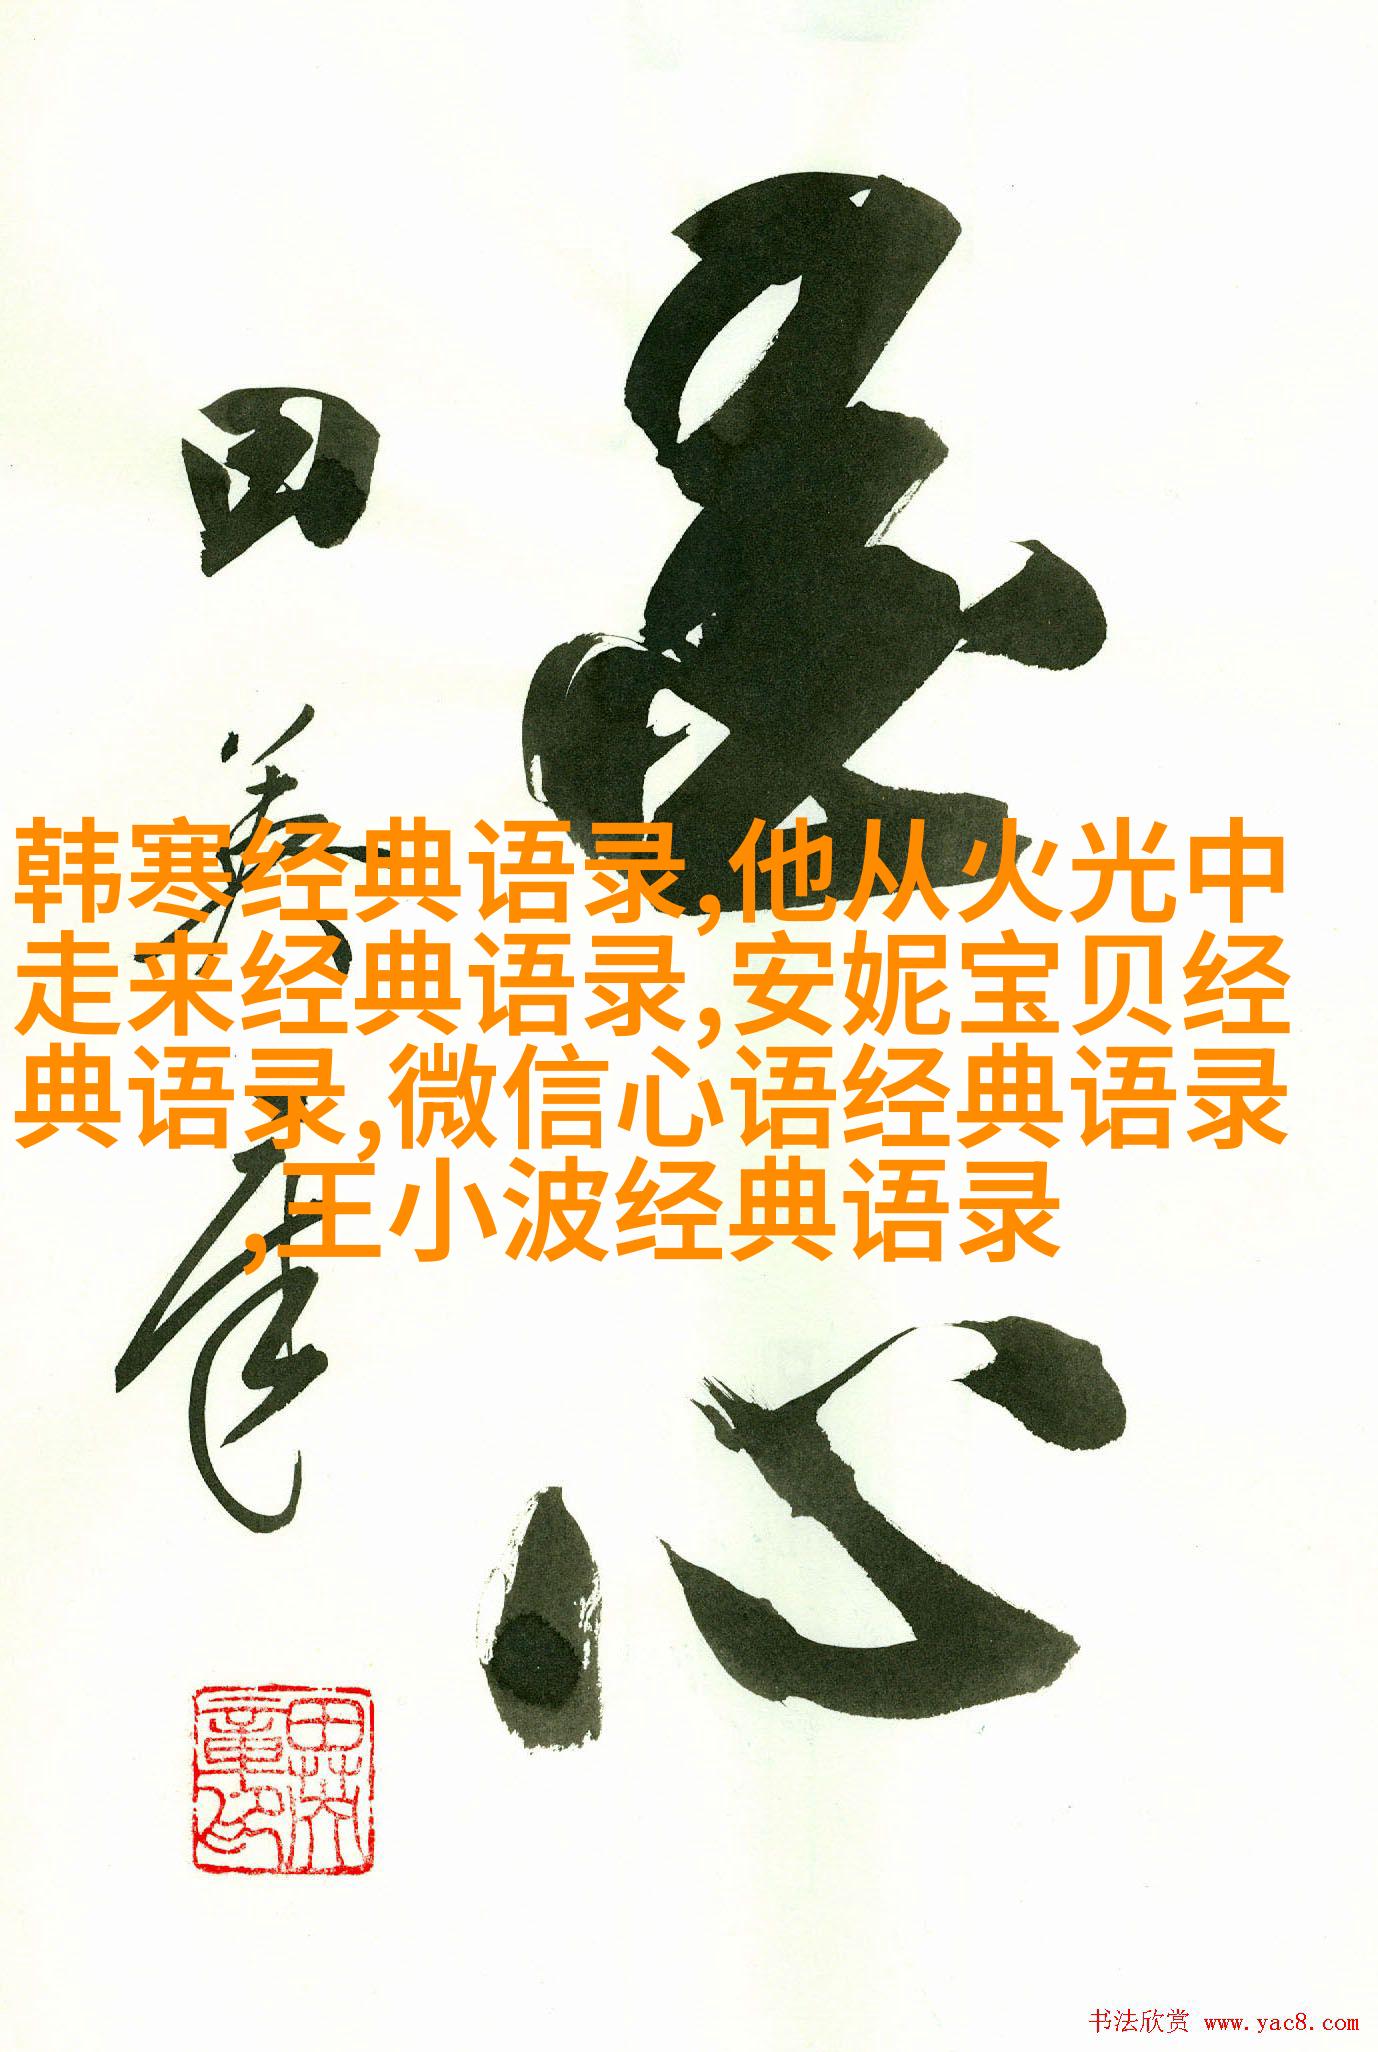 韩寒经典语录,他从火光中
走来经典语录,安妮宝贝经
典语录,微信心语经典语录
,王小波经典语录
田
心
书法欣赏 www.yac8.com